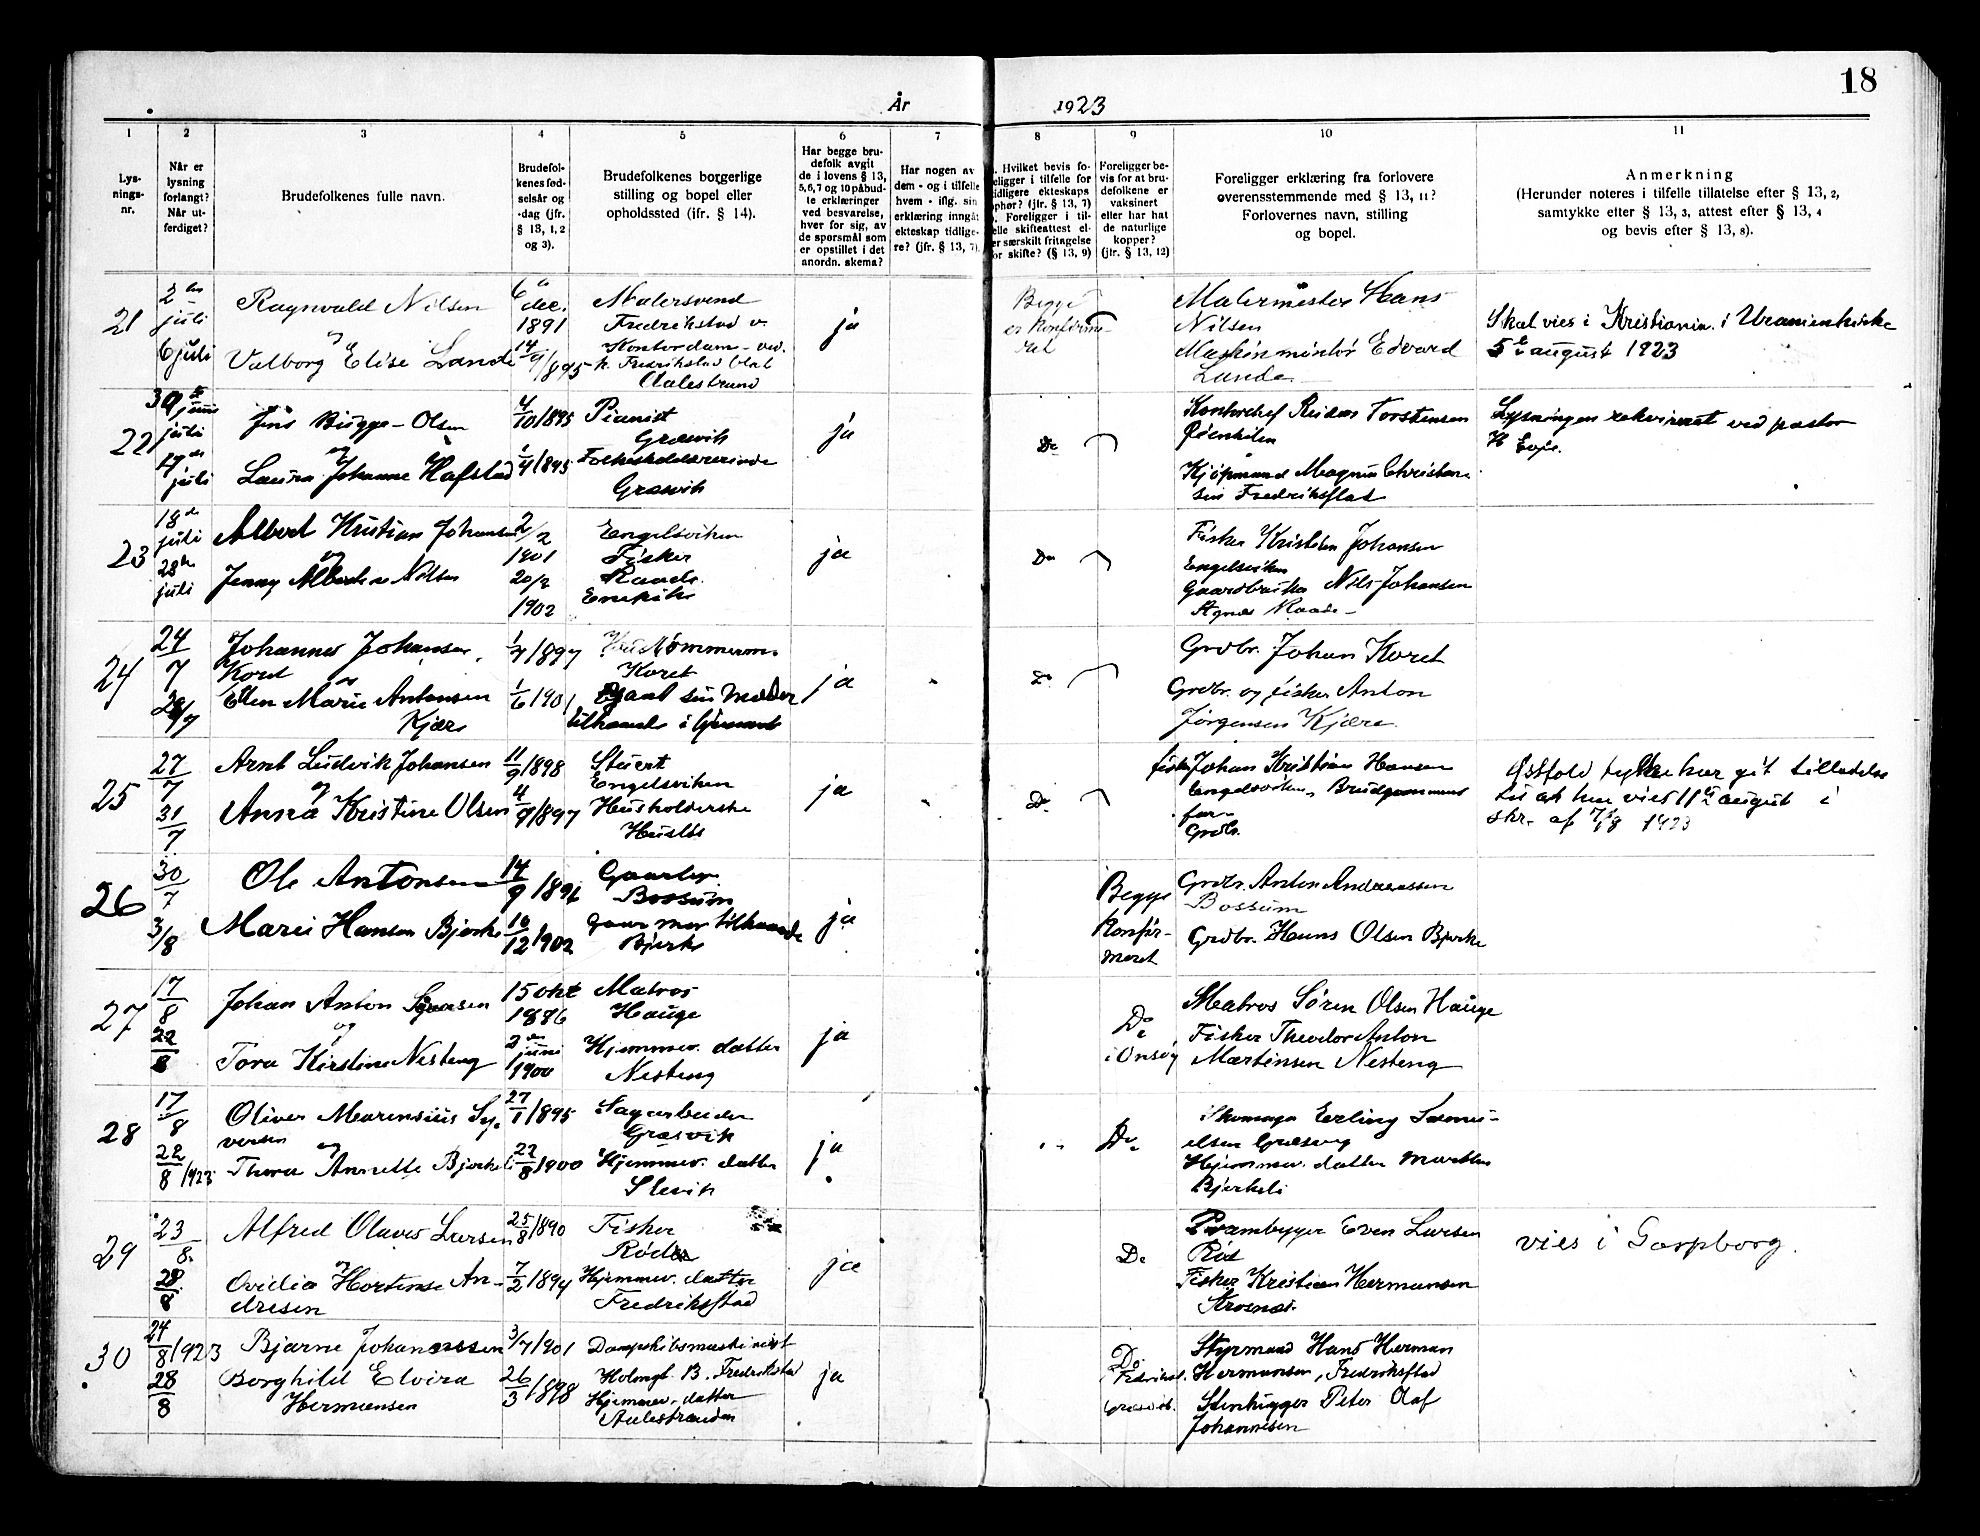 18
År 1923
1 2 3 4 5 6 7 8 9 10 11
Lys-
nings-
nr.
Når er
lysning
forlangt?
Når ut-
ferdiget?
Brudefolkenes fulle navn.
Brudefol-
kenes fød-
selsår og
-dag (jfr.
§ 13, 1, 2
og 3).
Brudefolkenes borgerlige
stilling og bopel eller
opholdssted (ifr. § 14).
Har begge bru-
defolk avgit
de i lovens § 13,
5, 6, 7 og 10 påbud-
te erklæringer
ved besvarelse,
hver for sig, av
de spørsmål som
er opstillet i det
anordn. skema?
Har nogen av
dem - og i tilfelle
hvem - iflg. sin
erklæring inngåt
ekteskap tidlige-
re? (jfr. § 13, 7).
Hvilket bevis fo-
religger i tilfelle for
tidligere ekteskaps
ophør? (jfr. § 13, 7)
Foreligger i til-
elle skifteattest el-
er særskilt fritagelse
or skifte? (§ 13, 9)
Foreligger be-
vis for at bru-
defolkene er
vaksinert
eller har hat
de naturlige
kopper?
(jfr. § 13, 12)
Foreligger erklæring fra forlovere
overensstemmende med § 13, 11?
Forlovernes navn, stilling
og bopel.
Anmerkning
(Herunder noteres i tilfelle tillatelse efter § 13, 2,
samtykke efter § 13, 3, attest efter § 13, 4
og bevis efter § 13, 8).
21
juli
6 juli
Ragnvald Nilsen
og
Valborg Elise Lande
6
dec.
1891
Malersvend
Fredrikstad v.
Kontordam
Fredrikstad
ja
Begge
er konfirme-
ret
Malermester Hans
Nilsen
Maskinmontør Edvard
Lunde
Skal vies i Kristiania i Uranienkirke
5 august 1923
22
juni
juli
juli
Jens Bugge-Olsen
og
Laura Johanne Hafstad
4/10/1895
1/4/1895
Pianist
Græsvik
Folkeskolelærerinde
Græsvik
ja
Do
Kontorchef Reidar Torstensen
Kjøpmand Magnus Christian-
sen Fredriksstad
Lysningen rekvireret ved pastor
23
18de
juli
28de
juli
Albert Kristian Johansen
og
Jenny Nilsen
2/2
1901
20/2
1902
Engelsviken
Fisker
Raade
ja
Do
Fisker Kristian Johansen
Engelsviken
Gaardbruker Nils Johansen
Raade
24
24/7
28/7
Johannes Johansen
Koret
og
Ellen Marie Antonsen
Kjære
1/7/1897
1/6/1901
Koret
sin Moder
tilhaande i
ja
Do
Grdbr. Johan Koret
Grdbr. og fisker Anton
Jørgensen Kjære
25
27/7
31/7
Arnt Ludvik Johansen
og
Anna Kristine Olsen
11/9/1898
4/9/1897
Stuert
Engelsviken
Husholderske
Huslös
ja
Do
fisker Johan Kristian Hansen
Engelsviken, Brudgommens
far
Grdbr.
Østfold fylke har git tilladelse
til at kun vies 11te august i
skr. af 7/8 1923
26
30/7
3/8
Ole Antonsen
Marie Hansen Bjerke
14/9
16/12 1902
Bossum
tilhaande
Bjerke
ja
Begge
konfir-
meret
Grdbr. Anton Andreassen
Bossum
Grdbr. Hans Olsen Bjerke
27
17/8
22/8
Johan Anton Sørensen
og
Tora Kirstine Nesteng
15 okt
1886
2den
juni
1900
Matros
Hauge
Hjemmev. datter
Nesteng
ja
Do
i Onsøy
Matros Sören Olsen Hauge
Fisker Theodor Anton
Martinsen Nesteng
28
17/8
22/8 1923
Oliver Marensius Sy-
versen
og
Thora Annette Bjerkeli
27/1/1895
22/8/1900
Sagarbeider
Græsvik
Hjemmev. datter
Slevik
ja
Do
Skomager Erling Samu-
elsen Græsvig
Hjemmev. datter Marthe
Bjerkeli
29
23/8
28/8
Alfred Olaves Larsen
og
Ovidia Hortense An-
dresen
25/8/1890
7/2/1894
Fisker
Röd
Hjemmev. datter
Fredriksstad
ja
Do
Prambygger Even Larsen
Röd
Fisker Kristian Hermansen
Krosnes
vies i Sarpborg.
30
24/8 1923
28/8
Bjarne Johannessen
Borghild Elvira
Hermansen
3/7/1901
26/3/1898
Dampskibsmaskinist
Holmgt. B. Fredrikstad
Hjemmev. datter
Aalestranden
ja
Do
Styrmand Hans Herman
Hermansen, Fredriksstad
Stenhugger Peter Olaf
Johannesen